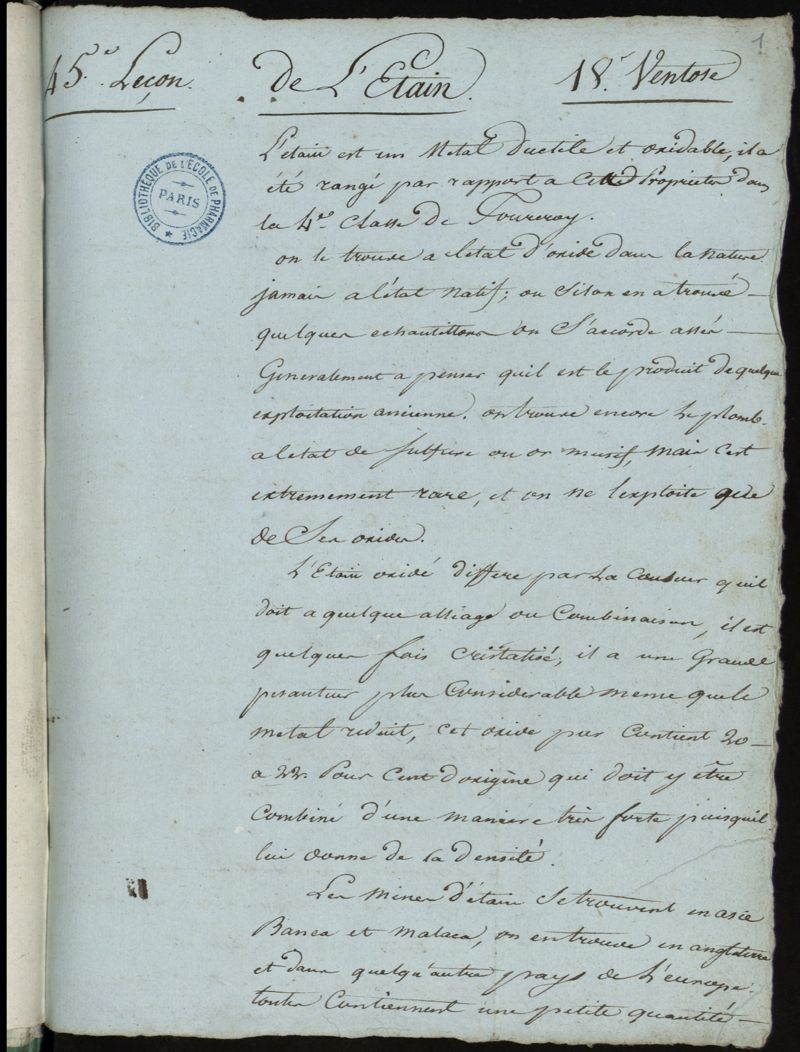 1
45.e Leçon. de L'Etain. 18.e Ventose
BIBLIOTHÈQUE DE L'ÉCOLE DE PHARMACIE
PARIS
L'étain est un Metal Ductile et oxidable, il a
été rangé par rapport a Cette Proprieter dans
la 4.e Classe de Fourcroy.
on le trouve a letat d'oxide dans la nature
jamais a l'état natif; ou Si lon en a trouvé
quelques echantillons on S'accorde assés
Generalement a penser quil est le produit de quelque
exploitation ancienne. on trouve encore Le plomb
a letat de Sulfure ou or musif, mais C'est
extremement rare, et on ne lexploite que
de Ses oxides.
L'Etain oxidé differe par La Couleur quil
doit a quelque alliage ou Combinaison, il est
quelques fois Cristalisé, il a une Grande
pesanteur plus Considerable meme que le
metal reduit, cet oxide pur Contient 20
a 22 Pour Cent d'origine qui doit y être
Combiné d'une maniere très forte puisquil
lui donne de la densité.
Les Mines d'étain Se trouvent en asie
Banca et Malaca, on en trouve en angleterre
et dans quelqu'autre pays de L'europe
toutes Contiennent une petite quantité